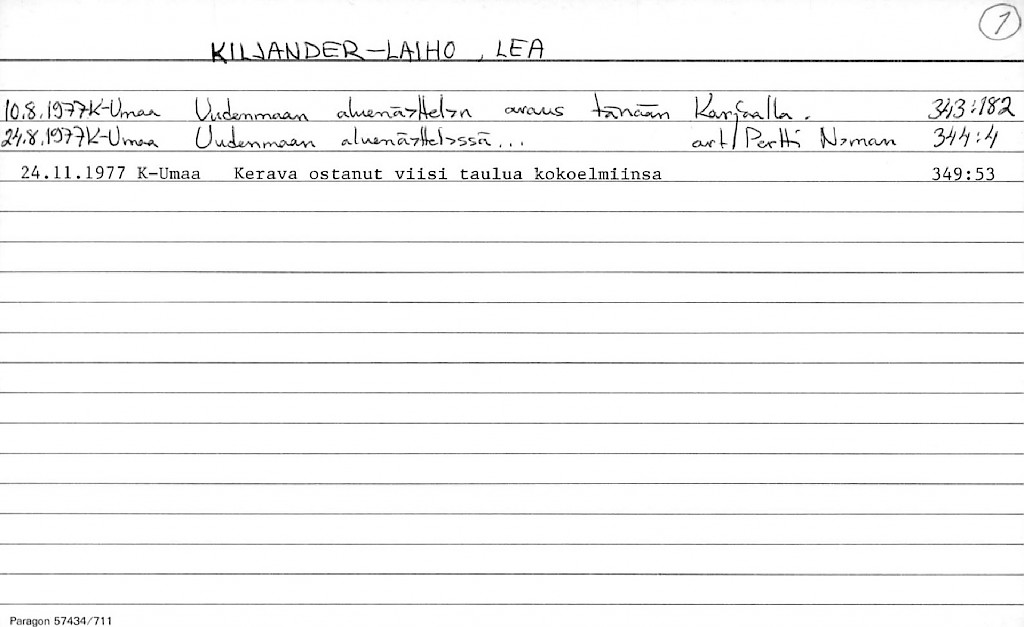 1
KILJANDER-LAIHO, LEA
10.8.1977 K-Umaa Uudenmaan aluenäyttelyn avaus tänään Karjaalla. 343:182
24.8.1977 K-Umaa Uudenmaan aluenäyttelyssä... art/Pertti Nyman 344:4
24.11.1977 K-Umaa Kerava ostanut viisi taulua kokoelmiinsa 349:53
Paragon 57434/711